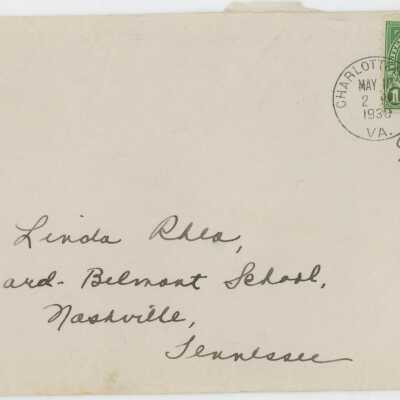 CHARLOTT
MAY
2
1930
VA.
1
Linda Rhea,
ard-Belmont School,
Nashville,
Tennessee